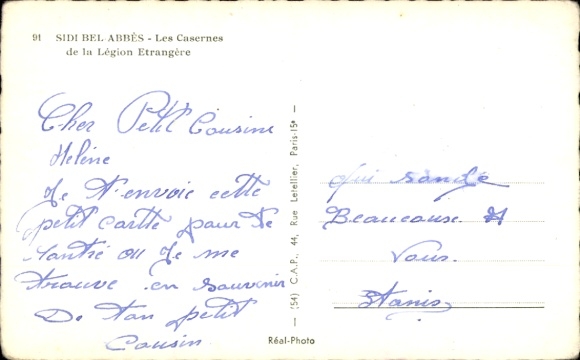 91 SIDI BEL ABBÈS - Les Casernes
de la Légion Etrangère
Cher Petit Cousine
Helène
Je t'envoie cette
petit cartte pour te
 ou je me
trouve en souvenir
De ton petit
Cousin
— (54) C.A.P., 44, Rue Letellier, Paris-15e —
Réal-Photo
qui
Beaucause
Vous
Stanis